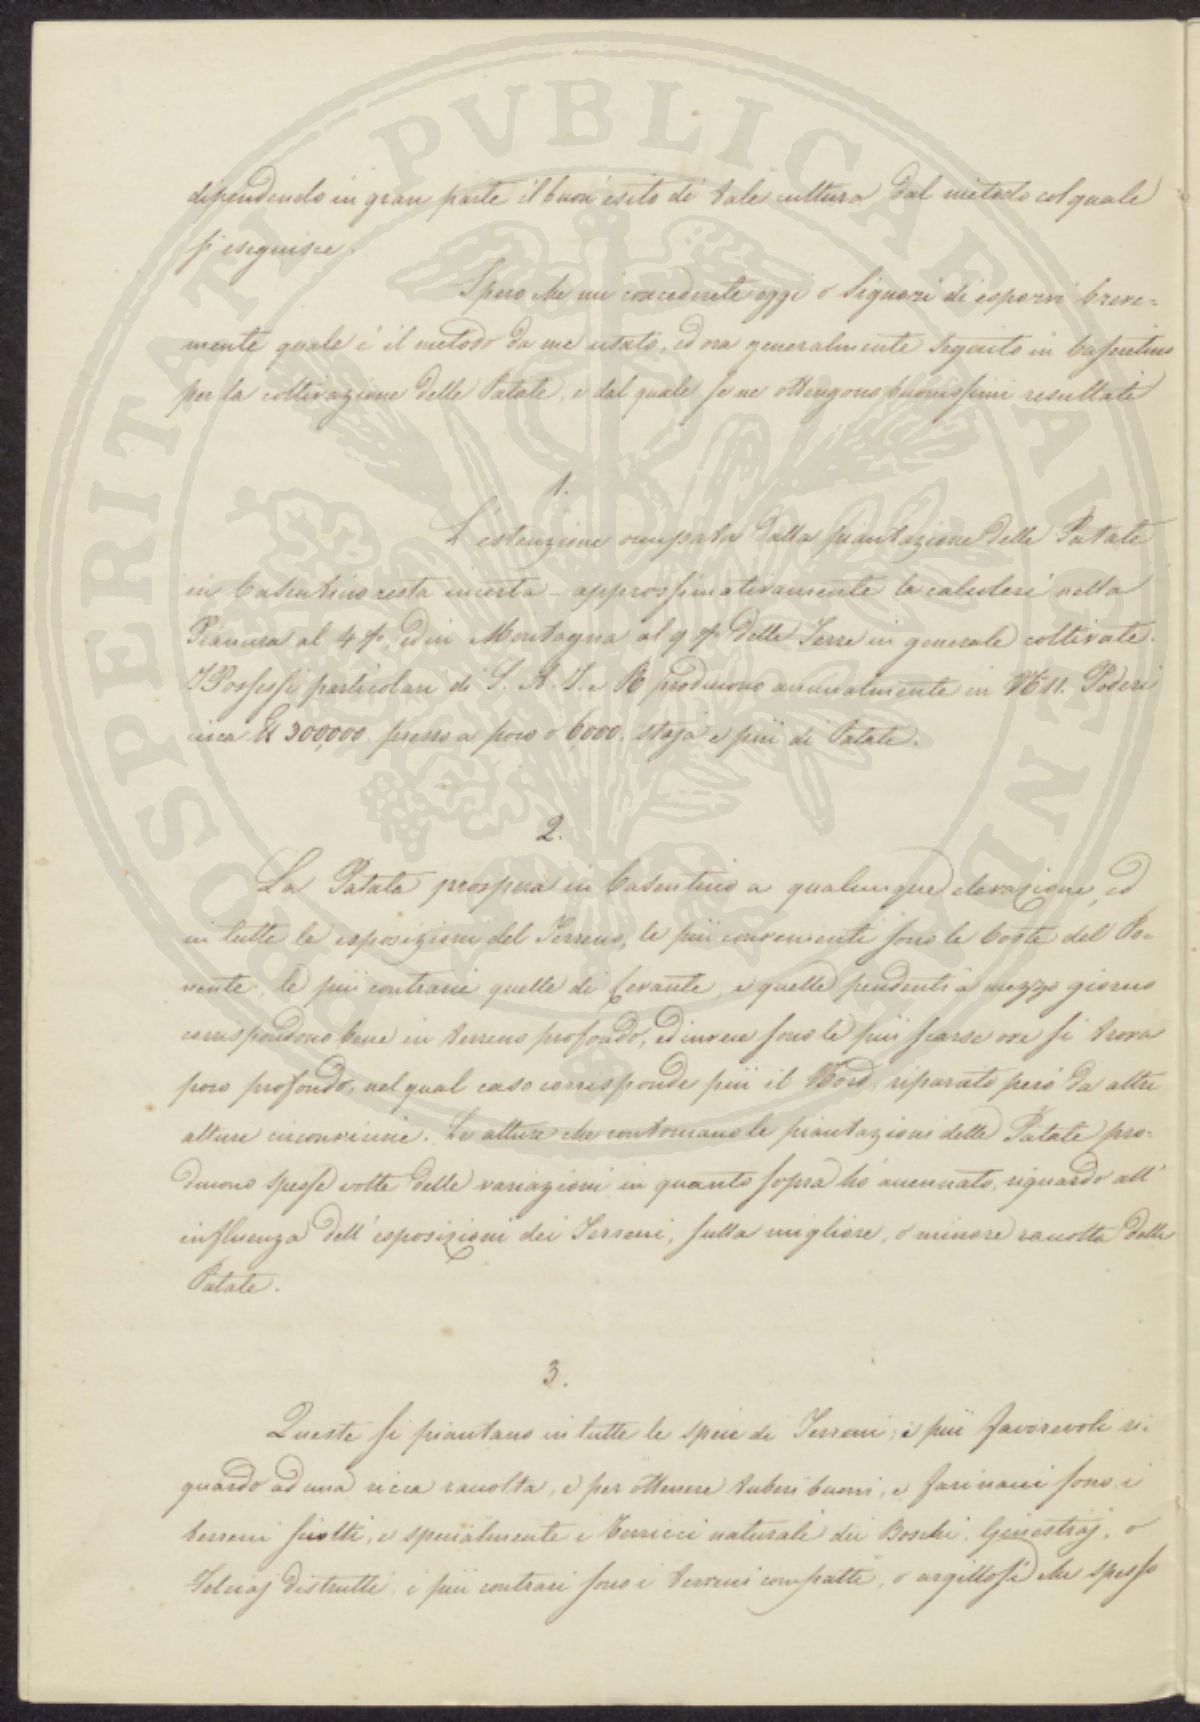 dipendendo in gran parte il buon esito di tale cultura dal metodo col quale
si eseguisce.
Spero che mi concederete oggi o Signori di esporvi breve=
mente quale è il metodo da me usato, ed ora generalmente seguito in Casentino
per la coltivazione delle Patate, e dal quale se ne ottengono buonissimi resultati
1.
L'estenzione occupata dalla piantazione delle Patate
in Casentino resta incerta - approssimativamente la calcolerei nella
Pianura al 4 p%, ed in Montagna al 9 p% delle Terre in generale coltivate.
I Possessi particolari di S. A. I. e R. producono annualmente in N° 11. Poderi
circa 300,000. presso a poco o 6,000. staja e più di Patate.
2.
La Patata prospera in Casentino a qualunque elevazione, ed
in tutte le esposizioni del Terreno, le più convenienti sono le Coste del Po-
nente, le più contrarie quelle di Levante, e quelle pendenti a mezzo giorno
corrispondono bene in terreno profondo, ed invece sono le più scarse ove si trova
poco profondo, nel qual caso corrisponde più il Nord, riparato però da altre
alture circonvicine. Le alture che contornano le piantazioni delle Patate pro-
ducono spesse volte delle variazioni in quanto sopra hò accennato, riguardo all'
influenza dell'esposizioni dei Terreni, sulla migliore, o minore raccolta delle
Patate.
3.
Queste si piantano in tutte le specie di Terreni; i più favorevoli ri-
guardo ad una ricca raccolta, e per ottenere tuberi buoni, e farinacei sono i
terreni sciolti, e specialmente i Terricci naturali dei Boschi, Ginestraj, o
Felciaj distrutti, i più contrari sono i terreni compatti, o argillosi che spesso
PROSPERITATI PVBLICAE AVGENDAE